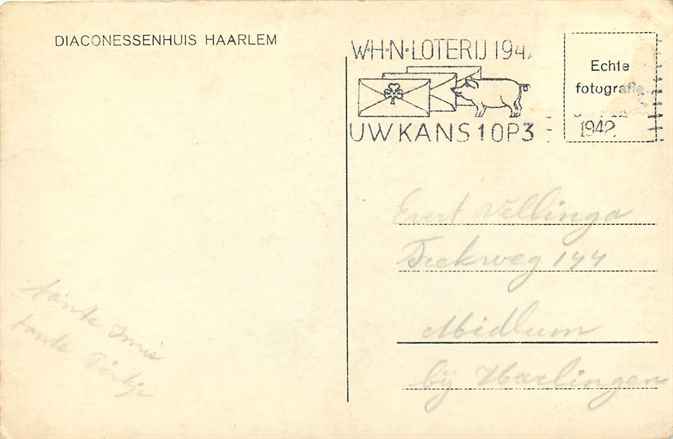 DIACONESSENHUIS HAARLEM
W·H·N·LOTERIJ 194
UW KANS 1 OP 3
Echte
fotografie
1942
Evert Vellinga
144
Midlum
bij Harlingen
tante
tante